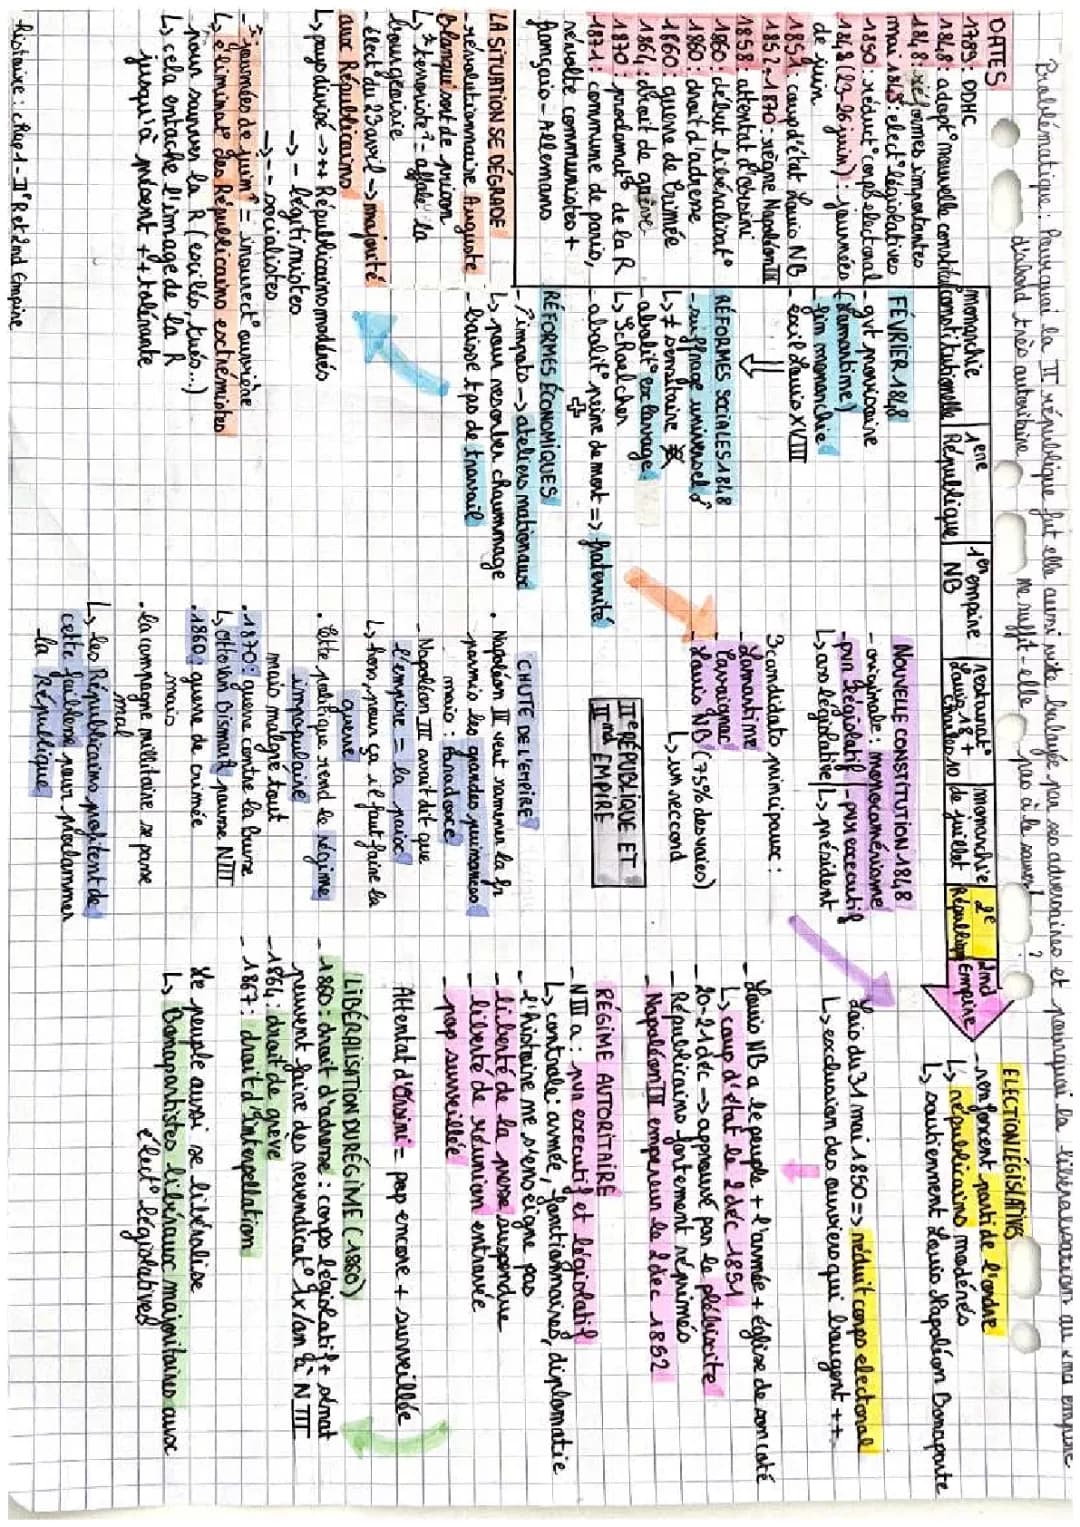 Problématique: Pourquoi la IIe république fut elle aussi vite balayée par ses adversaires et pourquoi la libéralisation du 2nd empire
d'abord très autoritaire ne suffit-elle pas à le sauver ?
DATES
1789: DDHC
1848: adopt° nouvelle constitut°
1848: réformes importantes
mai 1848: elect° législatives
1850: réduct° corps electoral
1848 (23-26 juin): journées
de juin
1851: coup d'état Louis NB
1852-1870: règne Napoléon III
1858: attentat d'Orsini
1860: début libéralisat°
1860: droit d'adresse
1860: guerre de Crimée
1864: droit de grève
1870: proclamat° de la R
1871: commune de paris,
révolte communistes +
français-Allemands
monarchie constitutionnelle
1ere République
1er empire NB
restaurat° Louis 18 + Charles 10
monarchie de juillet
2e République
2nd Empire
FÉVRIER 1848
- gvt provisoire
(Lamartine)
- fin monarchie
- exil Louis XVIII
RÉFORMES SOCIALES 1848
- suffrage universel ♂
↳ ≠ censitaire
- abolit° esclavage
↳ Schoelcher
- abolit° peine de mort => fraternité
+
RÉFORMES ÉCONOMIQUES
- ↗ impots → ateliers nationaux
↳ pour resorber chaummage
- baisse tps de travail
LA SITUATION SE DÉGRADE
- révolutionnaire Auguste
Blanqui sort de prison
↳ "terroriste": affole la
bourgeoisie
- élect° du 23 avril → majorité
aux Républicains
↳ pays divisé → ++ Républicains modérés
→ - légitimistes
→ -- socialistes
- "journées de juin" = insurrect° ouvrière
↳ éliminat° des Républicains extrémistes
pour sauver la R (exilés, tués...)
↳ cela entache l'image de la R
jusqu'à présent ++ tolérante
NOUVELLE CONSTITUTION 1848
- originale: monocamérisme
- pvr législatif - pvr executif
↳ ass législative ↳ président
3 candidats principaux:
- Lamartine
- Cavaignac
- Louis NB (75% des voies)
↳ un second
IIe RÉPUBLIQUE ET
IInd EMPIRE
CHUTE DE L'EMPIRE
• Napoléon III veut ramener la fr
parmis les grandes puissances
mais: paradoxe
- Napoléon III avait dit que
l'empire = la paix
↳ hors, pour ça il faut faire la
guerre
• Cette politique rend le régime
impopulaire
mais malgré tout
• 1870: guerre contre la Prusse
↳ Otto Von Bismark pousse N III
• 1860: guerre de crimée
mais
• la campagne millitaire se passe
mal
↳ les Républicains profitent de
cette faiblesse pour proclammer
la République
ELECTION LÉGISLATIVES
- renforcent parti de l'ordre
↳ républicains modérés
↳ soutiennent Louis Napoléon Bonaparte
Lois du 31 mai 1850 => réduit corps electoral
↳ exclusion des ouvriers qui bougent ++
- Louis NB a le peuple + l'armée + église de son coté
↳ coup d'état le 2 déc 1851
- 20-21 déc → approuvé par le plébiscite
- Républicains fortement réprimés
- Napoléon III empereur le 2 déc 1852
RÉGIME AUTORITAIRE
- N III a: pvr executif et législatif
↳ controle: armée, fonctionnaires, diplomatie
- l'histoire ne s'enseigne pas
- liberté de la presse suspendue
- liberté de réunion entravée
- pop surveillée
Attentat d'Orsini = pop encore + surveillée
LIBÉRALISATION DU RÉGIME (1860)
- 1860: droit d'adresse: corps législatif + sénat
peuvent faire des revendicat° 1x/an à N III
- 1864: droit de grève
- 1867: droit d'interpellation
Le peuple aussi se libéralise
↳ Bonapartistes libéraux majoritaires aux
élect° législatives
Histoire: chap 1 - IIe R et 2nd Empire